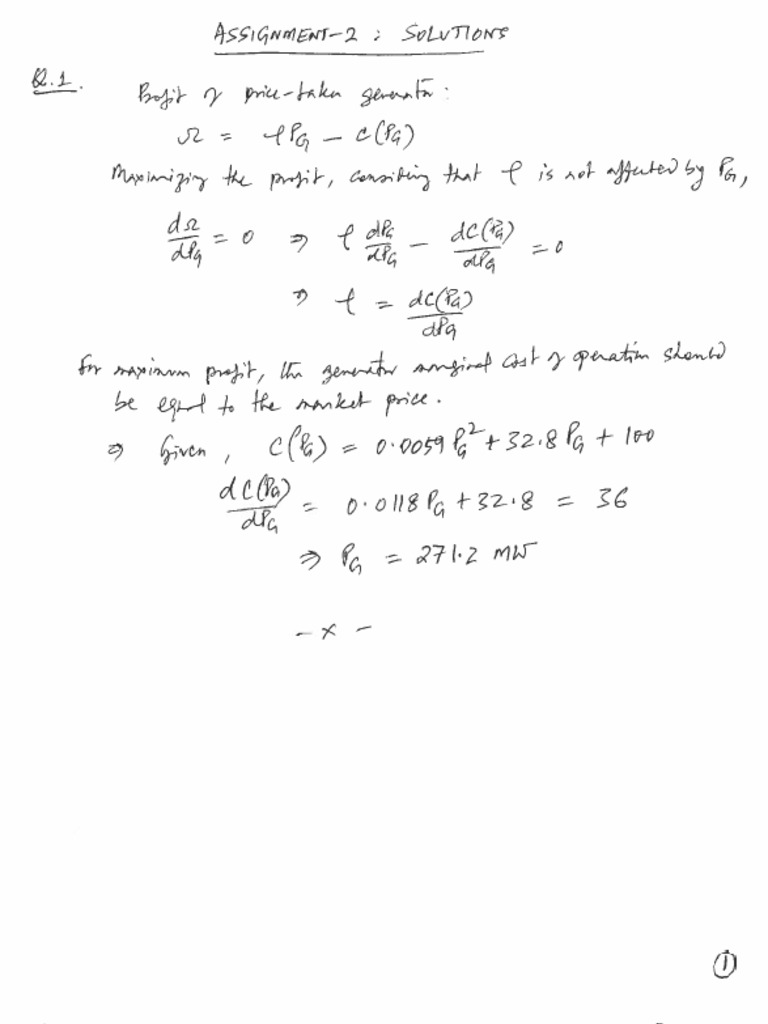 ASSIGNMENT-2 : SOLUTIONS
Q.1.
Profit of price-taker generator :
Ω = ρP_G − C(P_G)
Maximizing the profit, considering that ρ is not affected by P_G,
dΩ/dP_G = 0 ⇒ ρ dP_G/dP_G − dC(P_G)/dP_G = 0
⇒ ρ = dC(P_G)/dP_G
For maximum profit, the generator marginal cost of operation should
be equal to the market price.
⇒ Given, C(P_G) = 0.0059 P_G² + 32.8 P_G + 100
dC(P_G)/dP_G = 0.0118 P_G + 32.8 = 36
⇒ P_G = 271.2 MW
– x –
1